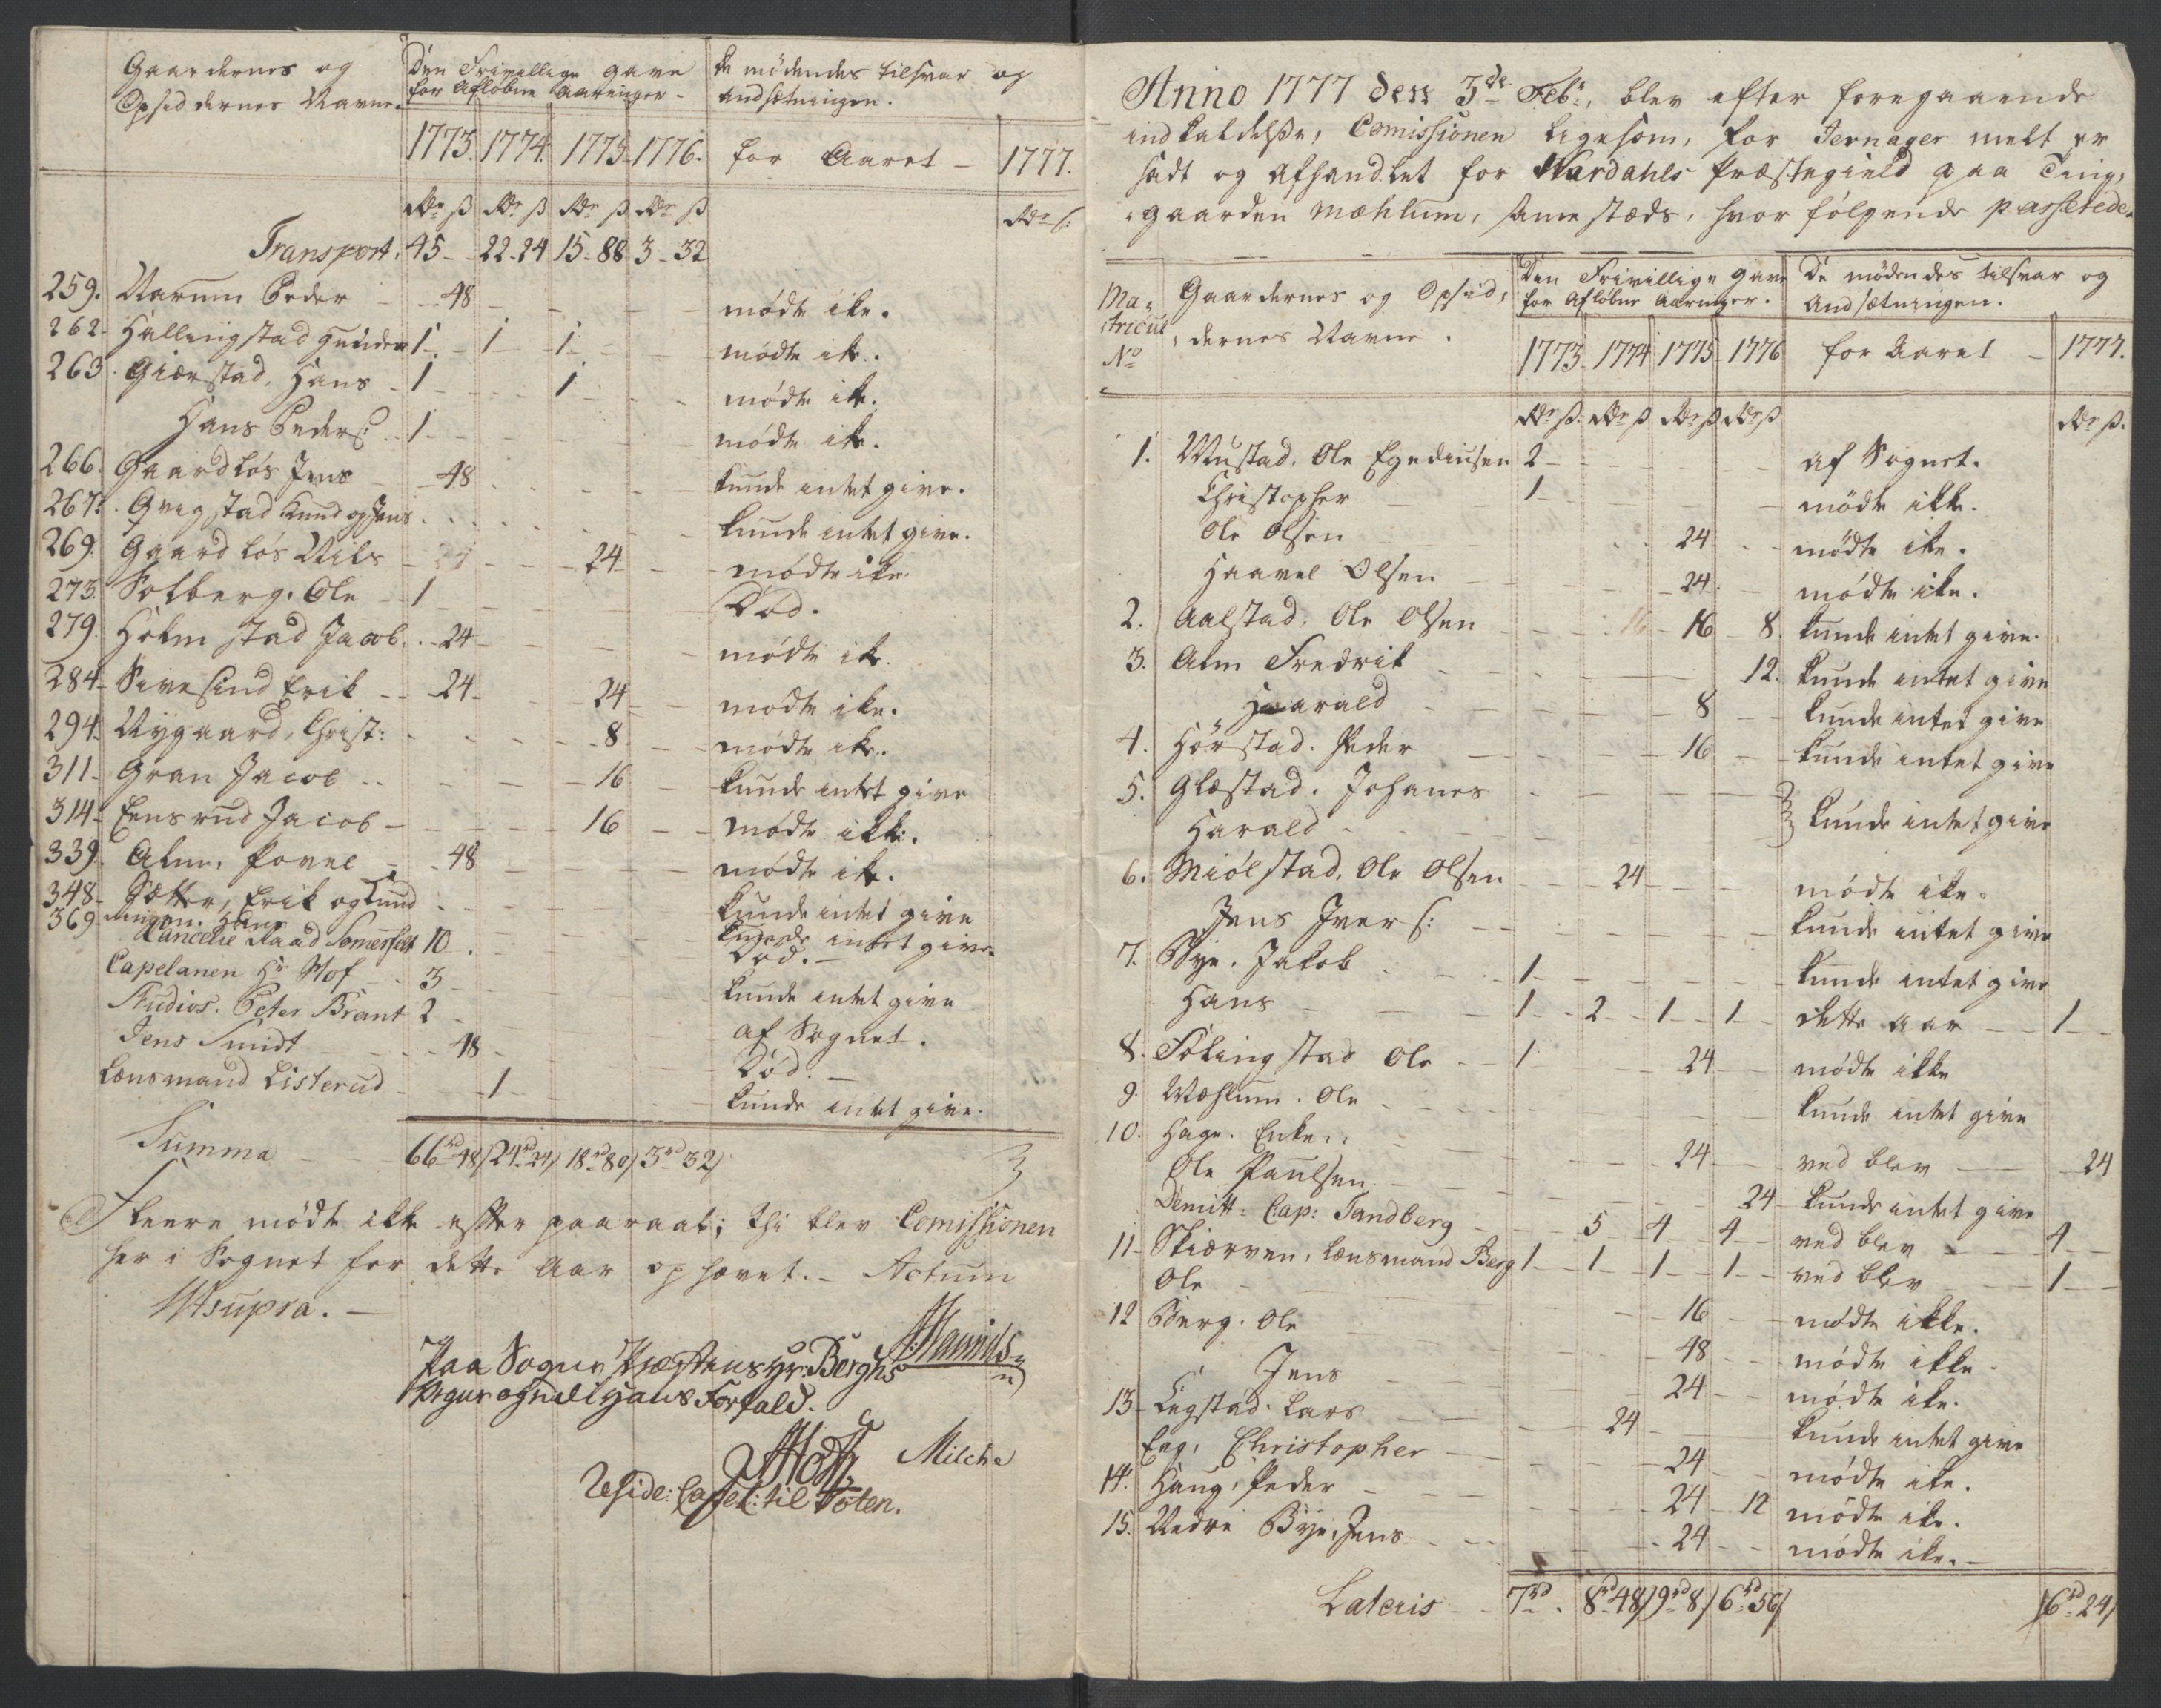 Gaardernes og
Opsiddernes Navne.
Den Frivillige gave
for Afløbne Aaringer -
De mødendes tilsvar og
Andsætningen.
1773. 1774. 1775. 1776. for Aaret - 1777.
Rdr ß Rdr ß Rdr ß Rdr ß Rdr ß:
Transport. 45 - 22 - 24 15 - 88 3 - 32
259. Narum Peder - 48 - mødte ike.
262. Hallingstad Gunder 1 - 1 - 1 - mødte ik.
263. Giærstad, Hans - 1 - 1 - mødte ik.
Hans Peders: 1 - mødte ik.
266. Gaardløs Jens - 48 - kunde intet give.
267. Qvigstad Knud og Jens - kunde intet give.
269. Gaardløs Nils - 24 - 24 - mødte ike
273. Solberg. Ole - 1 - Død.
279. Holmstad Jacob. - 24 - mødte ik.
284. Sivesind Erik - 24 - 24 - mødte ike.
294. Nygaard, Christ: - 8 - mødte ik.
311. Gran Jacob - 16 - kunde intet give
314. Eensrud Jacob - 16 - mødte ikke.
339. Alm, Povel - 48 - mødte ik.
348. Sætter, Erik og Knud - kunde intet give
369. Hans - kunde intet give
Cancelie Raad Somerfelt 10 - Død. -
Capelanen Hr Hof - 3 - kunde intet give
Studios. Peter Brant 2 - af Sognet.
Jens Smidt - 48 - Død. -
Lensmand Listerud - 1 - kunde intet give.
Summa 66rd 48/ 24rd 24/ 18rd 80/ 3rd 32/
Fleere mødte ikke efter paaraab; thi blev Comissionen
her i Sognet for dette Aar ophævet. - Actum
Utsupra. -
Paa Sogne Præstens Hr: Berghs
Vegne og udi hans Forfald.
Hoff
Milche
Reside: Capel: til Toten.
Anno 1777 den 3de Feb:, blev efter foregaaende
indkaldelsse, Comissionen ligesom, for Jevnager melt er
sadt og afhandlet for Wardahls Præstegield paa Ting,
gaarden Mæhlum, samestæds, hvor følgende passerede.
Ma,
tricul
No
Gaardernes og Opsid,
dernes Navne.
Den Frivillige gave
for Afløbne Aaringer.
De mødendes tilsvar og
Andsætningen.
1773. 1774 1775 1776 for Aaret - 1777.
Rdr ß. Rdr ß Rdr ß Rdr ß Rdr ß.
1. Mustad, Ole Egediusen 2 - af Sognet.
Christopher - 1 - mødte ikke.
Ole Olsen - 24 - mødte ike.
Haavel Olsen - 24 - mødte ike.
2. Aalstad, Ole Olsen - 16 - 16 - 8. kunde intet give.
3. Alm Fredrik - 12. kunde intet give
Haarald - 8 - kunde intet give
4. Hørstad. Peder - 16 - kunde intet give
5. Glæstad. Johanes
Harald - kunde intet give
6. Miølstad, Ole Olsen - 24 - mødte ike.
Jens Ivers: - kunde intet give
7. Bye. Jakob - 1 - kunde intet give
Hans - 1 - 2 - 1 - 1 - dette aar - 1 -
8. Fokingstad Ole - 1 - 24 - mødte ikke
9. Mæhlum. Ole - kunde intet give
10. Hage. Enken - 24 - ved blev - 24
Ole Paulsen - 24 - kunde intet give
Demitt: Cap: Sandberg - 5 - 4 - 4 - ved blev - 4 -
11. Skiærven, Lensmand Berg 1 - 1 - 1 - 1 - ved blev - 1 -
Ole - 16 - mødte ikke.
12 Berg. Ole - 48 - mødte ikke.
Jens - 24 - mødte ike.
13. Legstad. Lars - 24 - kunde intet give
Eeg, Christopher - 24 - mødte ike.
14. Haug, Peder - 24 - 12 mødte ike.
15. Nedre Bye, Jens - 24 - mødte ike. -
Lateris - 7rd. 8rd 48/ 9rd 8/ 6rd 56/ 6rd 24/